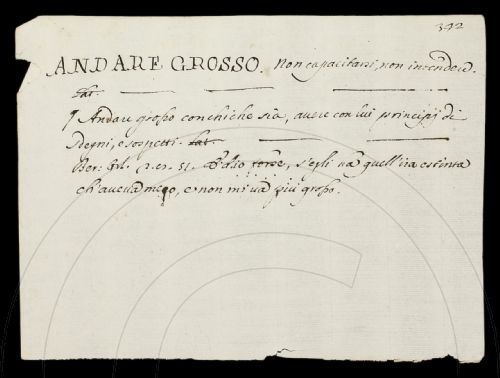 342
ANDARE GROSSO. Non capacitarsi, non intendere.
Lat.
¶ Andar grosso con chiche sia, avere con lui principij di
sdegni, e sospetti. Lat.
Ber: Orl. 2. er. 51. s'egli ha quell'ira estinta
ch'aveva meco, e non mi va più grosso.